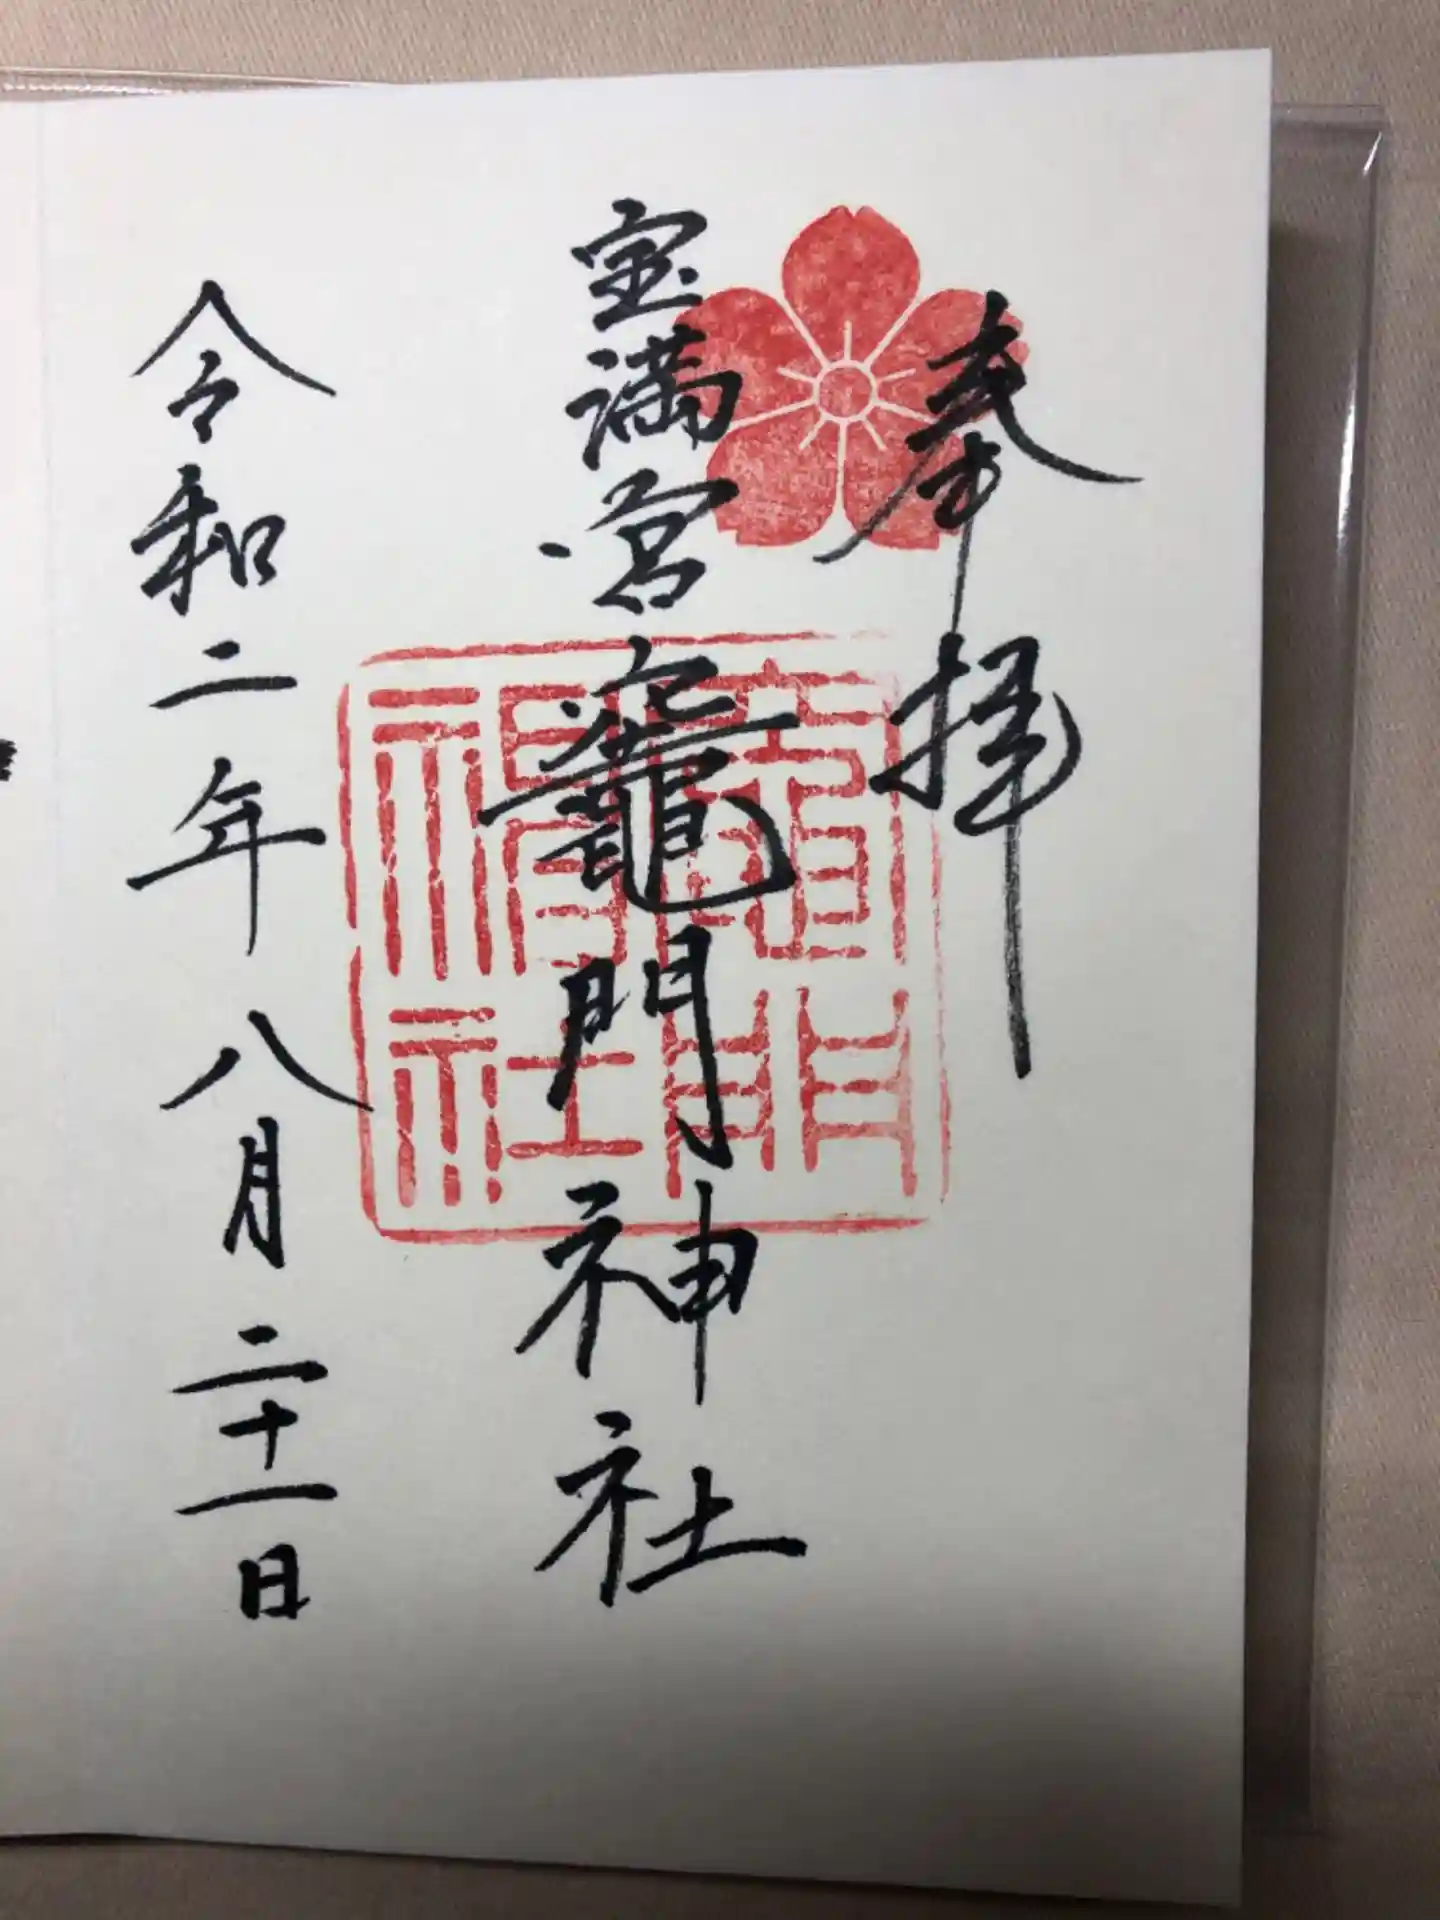 奉拝
宝満宮竈門神社
令和二年八月二十一日
竈門神社